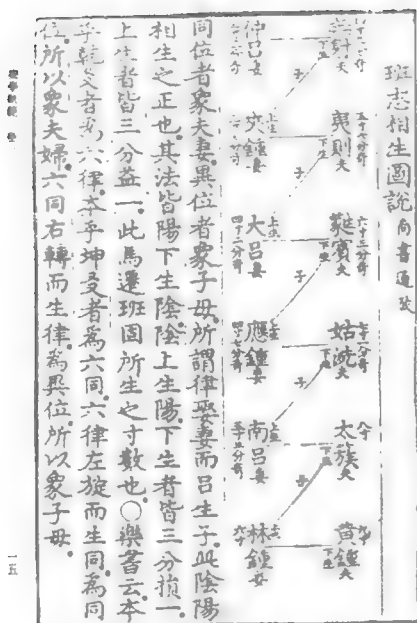 班志相生圖說 尚書通攷
無射夫 下生
夷則夫 下生
蕤賓夫 下生
姑洗夫 下生
太簇夫 下生
黃鍾夫 下生
子 子 子 子 子
仲呂妻
夾鍾妻 上生
大呂妻 上生
應鍾妻 上生
南呂妻 上生
林鍾妻 上生
同位者象夫妻。異位者象子母。所謂律娶妻而呂生子。此陰陽
相生之正也。其法皆陽下生陰。陰上生陽。下生者皆三分損一。
上生者皆三分益一。此馬遷班固所生之寸數也。○樂書云。本
乎乾爻者為六律。本乎坤爻者為六同。六律左旋而生同。為同
位。所以象夫婦。六同右轉而生律。為異位。所以象子母。
一五